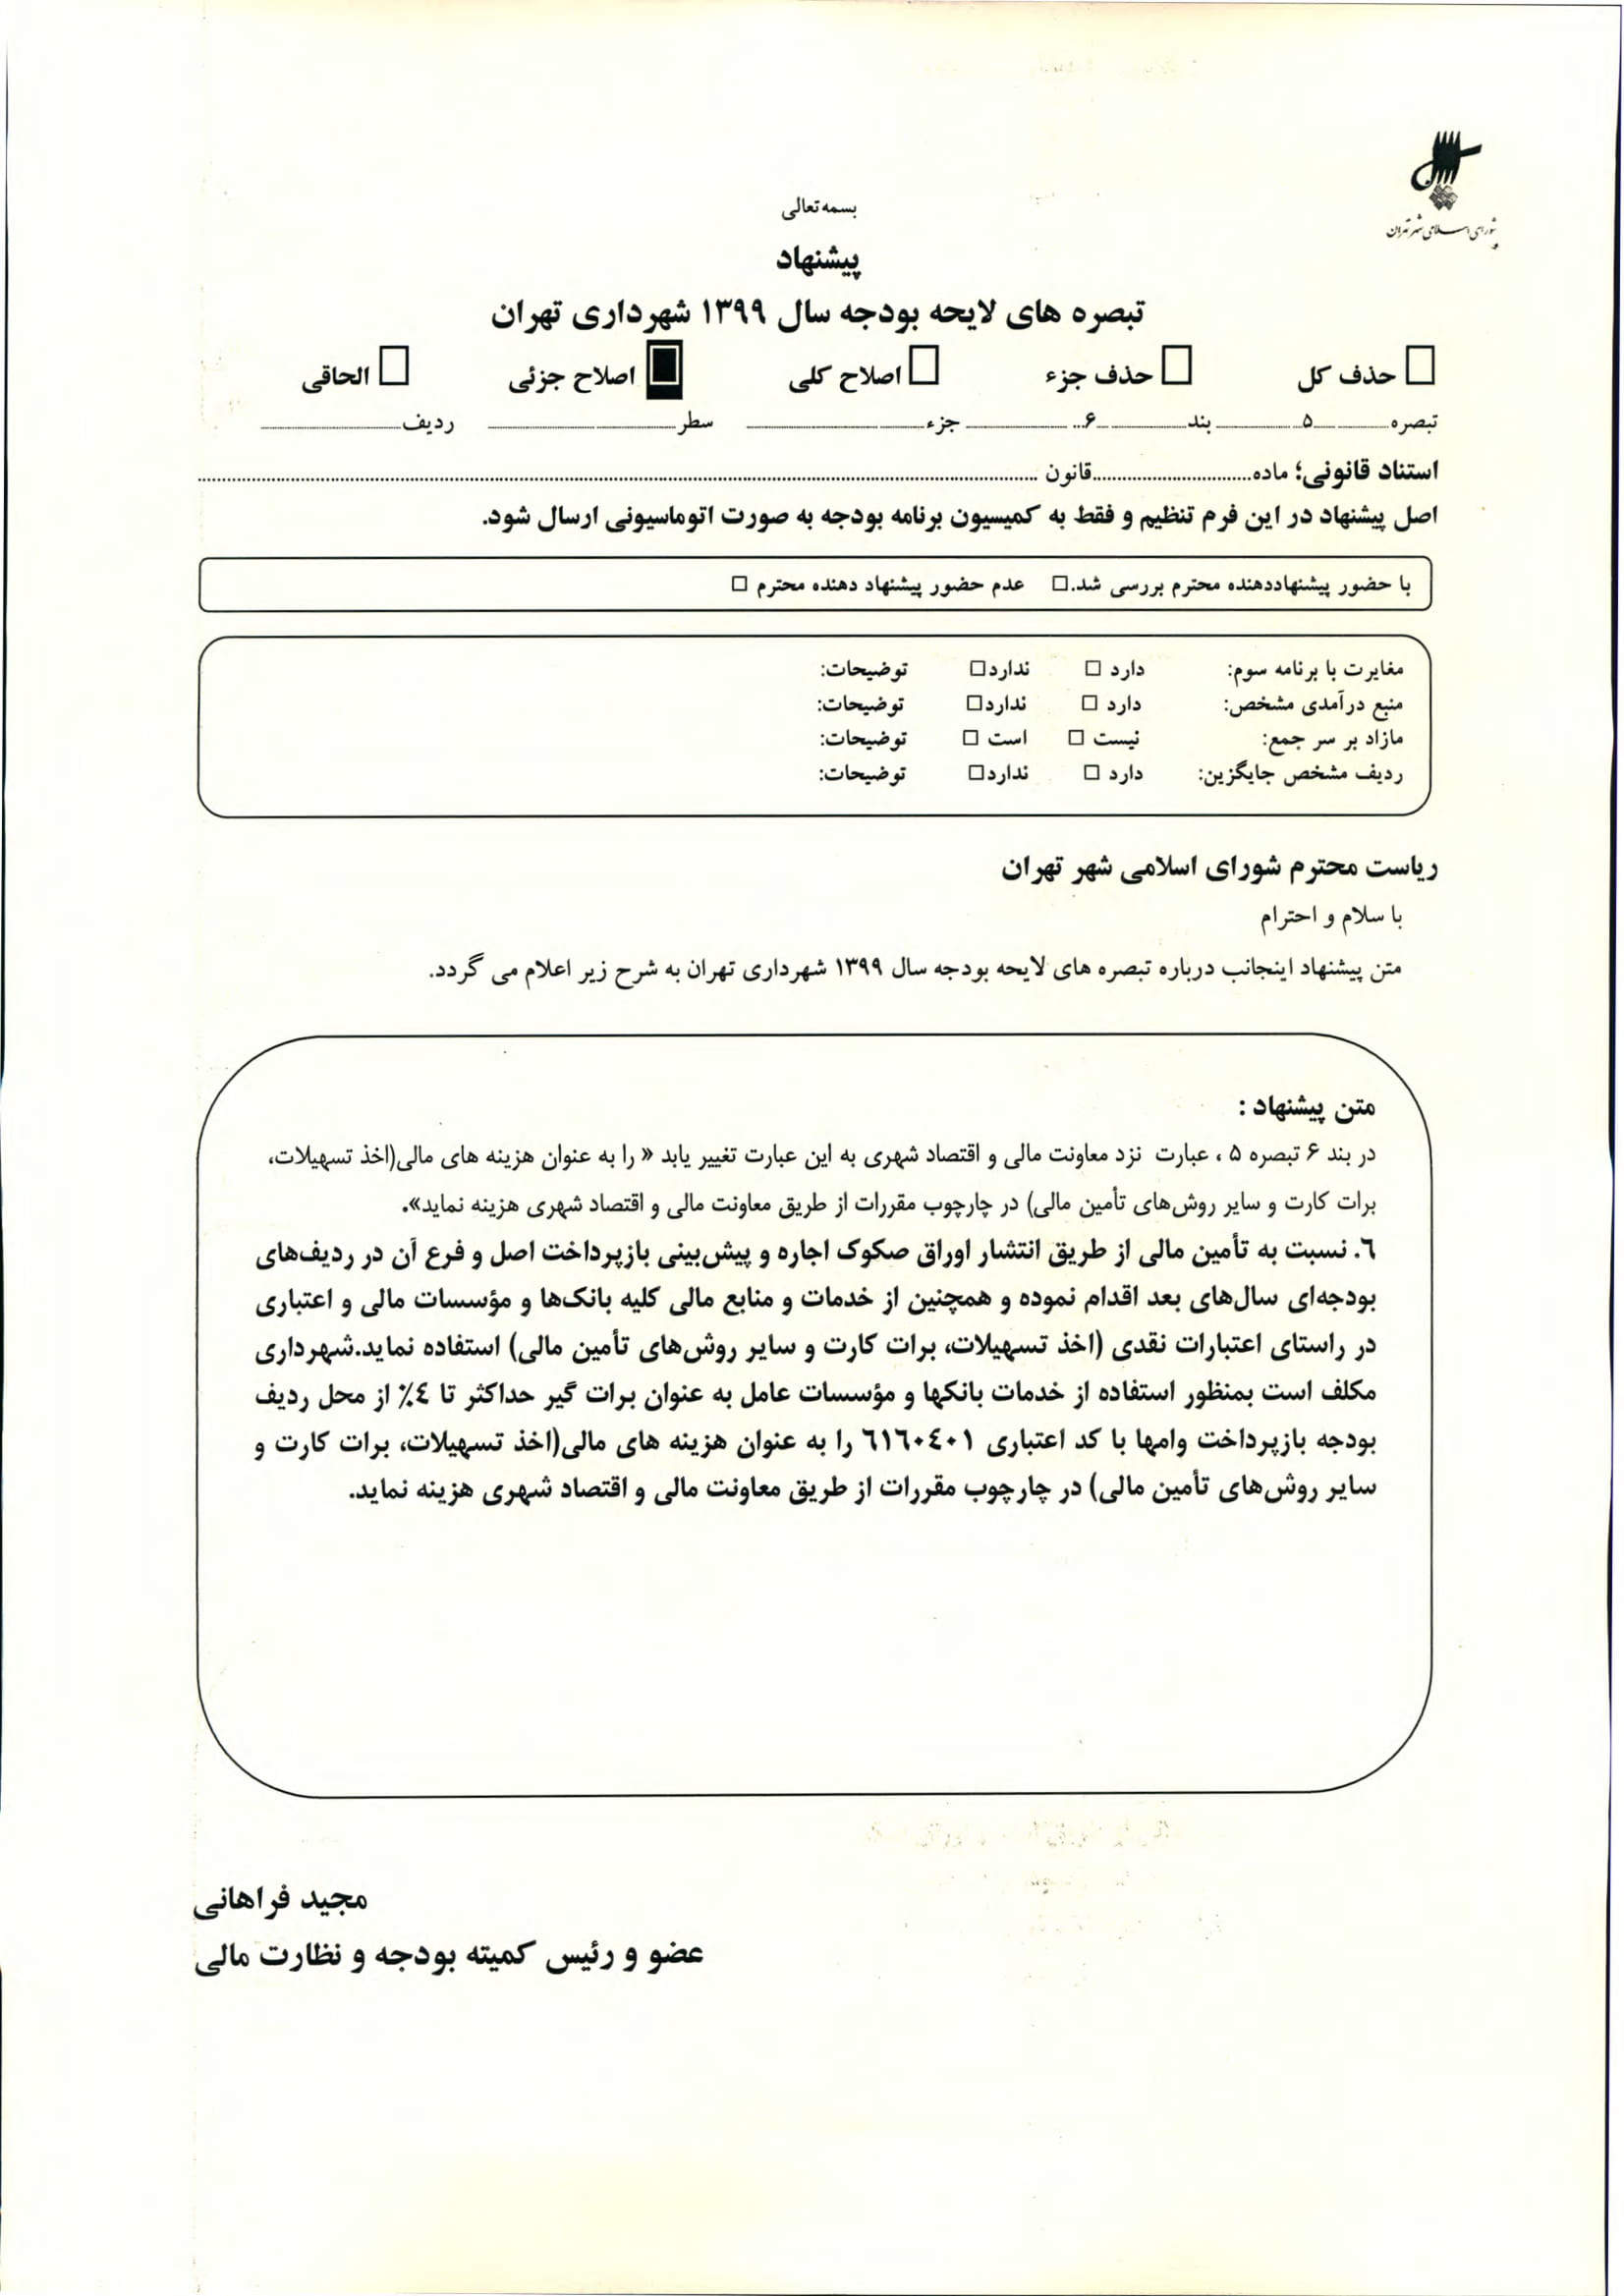 شورای اسلامی شهر تهران
بسمه تعالی
پیشنهاد
تبصره های لایحه بودجه سال ۱۳۹۹ شهرداری تهران
☐ حذف کل ☐ حذف جزء ☐ اصلاح کلی ■ اصلاح جزئی ☐ الحاقی
تبصره ............۵............ بند ............۶............ جزء ............ سطر ............ ردیف ............
استناد قانونی؛ ماده............قانون ............
اصل پیشنهاد در این فرم تنظیم و فقط به کمیسیون برنامه بودجه به صورت اتوماسیونی ارسال شود.
با حضور پیشنهاددهنده محترم بررسی شد.☐ عدم حضور پیشنهاد دهنده محترم ☐
مغایرت با برنامه سوم: دارد ☐ ندارد☐ توضیحات:
منبع درآمدی مشخص: دارد ☐ ندارد☐ توضیحات:
مازاد بر سر جمع: نیست ☐ است ☐ توضیحات:
ردیف مشخص جایگزین: دارد ☐ ندارد☐ توضیحات:
ریاست محترم شورای اسلامی شهر تهران
با سلام و احترام
متن پیشنهاد اینجانب درباره تبصره های لایحه بودجه سال ۱۳۹۹ شهرداری تهران به شرح زیر اعلام می گردد.
متن پیشنهاد :
در بند ۶ تبصره ۵ ، عبارت نزد معاونت مالی و اقتصاد شهری به این عبارت تغییر یابد « را به عنوان هزینه های مالی(اخذ تسهیلات،
برات کارت و سایر روش‌های تأمین مالی) در چارچوب مقررات از طریق معاونت مالی و اقتصاد شهری هزینه نماید».
٦. نسبت به تأمین مالی از طریق انتشار اوراق صکوک اجاره و پیش‌بینی بازپرداخت اصل و فرع آن در ردیف‌های
بودجه‌ای سال‌های بعد اقدام نموده و همچنین از خدمات و منابع مالی کلیه بانک‌ها و مؤسسات مالی و اعتباری
در راستای اعتبارات نقدی (اخذ تسهیلات، برات کارت و سایر روش‌های تأمین مالی) استفاده نماید.شهرداری
مکلف است بمنظور استفاده از خدمات بانکها و مؤسسات عامل به عنوان برات گیر حداکثر تا ٤٪ از محل ردیف
بودجه بازپرداخت وامها با کد اعتباری ٦١٦٠٤٠١ را به عنوان هزینه های مالی(اخذ تسهیلات، برات کارت و
سایر روش‌های تأمین مالی) در چارچوب مقررات از طریق معاونت مالی و اقتصاد شهری هزینه نماید.
مجید فراهانی
عضو و رئیس کمیته بودجه و نظارت مالی